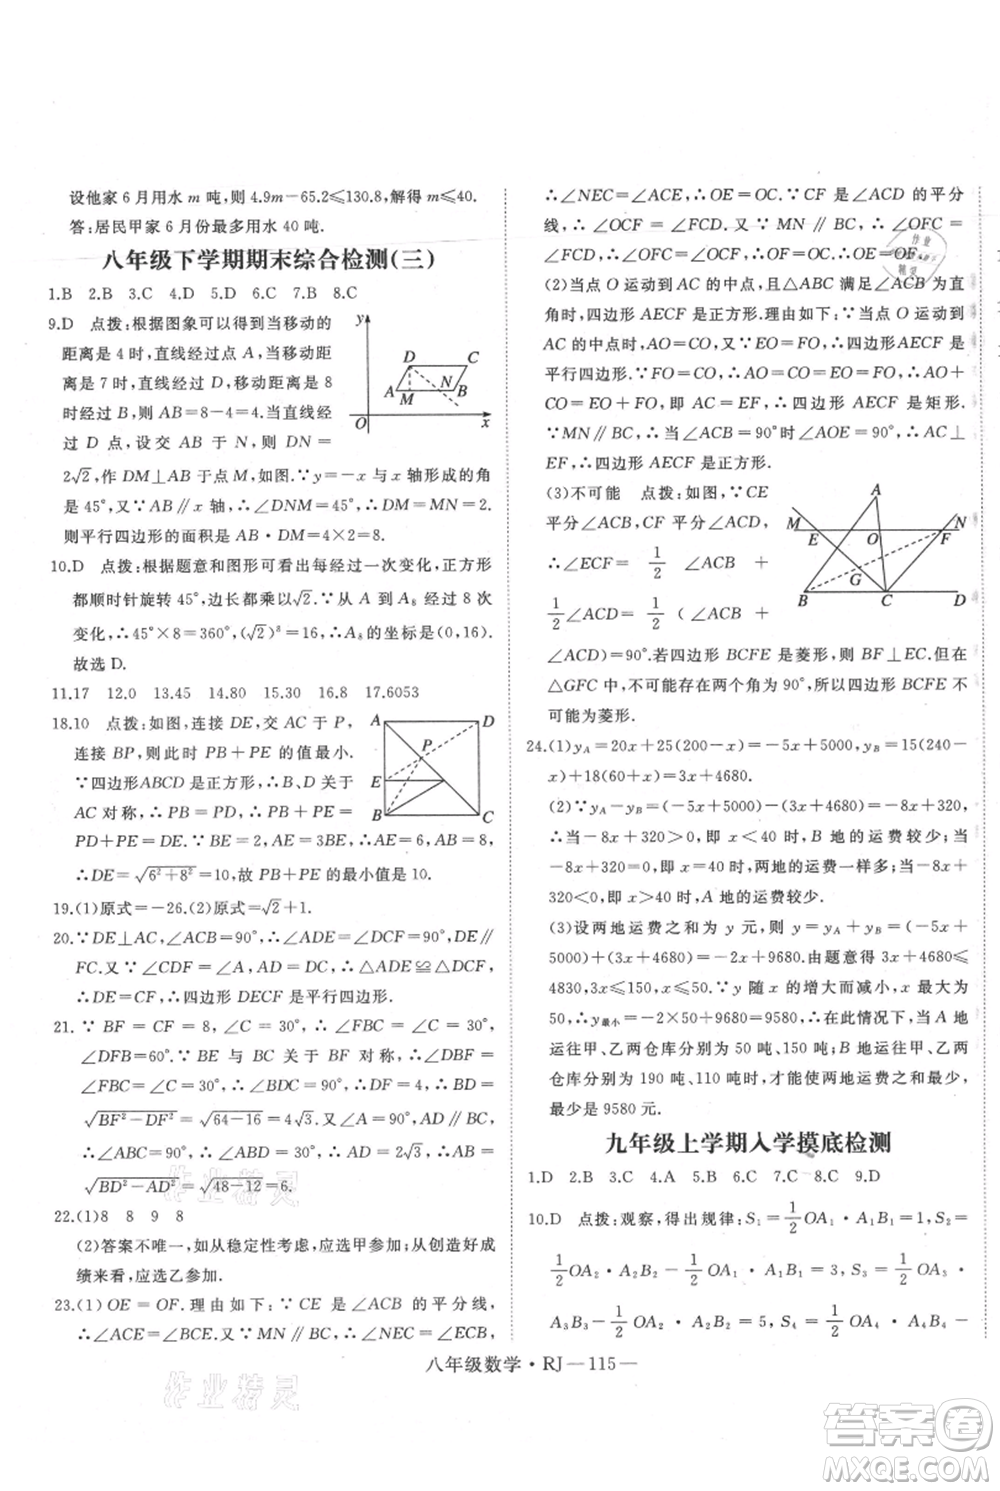 设他家 6 月用水 m 吨,则 4.9m－65.2≤130.8,解得 m≤40.
答:居民甲家 6 月份最多用水 40 吨.
八年级下学期期末综合检测(三)
1.B 2.B 3.C 4.D 5.D 6.B 7.B 8.C
9.D 点拨:根据图象可以得到当移动的
距离是 4 时,直线经过点 A,当移动距
离是 7 时,直线经过 D,当移动距离是 8
时经过 B,则 AB=8-4=4.当直线经
过 D 点,设交 AB 于 N,则 DN=
2√2,作 DM⊥AB 于点 M,如图:∵y=－x 与 x 轴形成的角
是 45°,又∵AB∥x 轴,∴∠DNM=45°,∴DM=MN=2.
则平行四边形的面积是 AB·DM=4×2=8.
y
D C
A M N B
O x
10.D 点拨:根据题意和图形可看出每经过一次变化,正方形
都顺时针旋转 45°,边长都乘以√2.∵从 A 到 A₈ 经过 8 次
变化,∴45°×8=360°,(√2)⁸=16,∴A₈ 的坐标是(0,16).
故选 D.
11.17 12.0 13.45 14.80 15.30 16.8 17.6053
18.10 点拨:如图,连接 DE,交 AC 于 P,
连接 BP,则此时 PB+PE 的值最小.
∵四边形ABCD 是正方形,∴B、D 关于
AC 对称,∴PB=PD,∴PB+PE=
PD+PE=DE.∵BE=2,AE=3BE,∴AE=6,AB=8.
∴DE=√(6²+8²)=10,故 PB+PE 的最小值是 10.
A D
P
E
B C
19.(1)原式=－26.(2)原式=√2+1.
20.∵DE⊥AC,∠ACB=90°,∴∠ADE=∠DCF=90°,DE∥
FC.又∵∠CDF=∠A,AD=CD,∴△ADE≌△DCF,
∴DE=CF,∴四边形 DECF 是平行四边形.
21.∵ BF = CF = 8, ∠C = 30°, ∴ ∠FBC = ∠C = 30°,
∴∠DFB=60°.∵△ABE 与△DBE 关于 BE 对称,∴∠BDF=
∠A = 90°, ∴ ∠FBD = 30°, ∴ DF = 1/2 BF = 4, ∴ BD =
√(BF²－DF²)=√(64－16)=4√3.∵∠A=90°,AD∥BC,
∴∠ABC = 90°, ∴ ∠ABD = 30°, ∴ AD = 1/2 BD = 2√3, AB =
√(BD²－AD²)=√(48－12)=6.
22.(1)8 8 9 8
(2)答案不唯一,如从稳定性考虑,应选甲参加;从更好成
绩来看,应选乙参加.
23.(1) OE = OF. 理由如下: ∵ CE 是∠ACB 的平分线,
∴∠ACE=∠BCE.又∵MN∥BC,∴∠NEC=∠ECB,
∴∠NEC=∠ACE,∴OE=OC.∵CF 是∠ACD 的平分
线,∴∠OCF=∠FCD.又∵MN∥BC,∴∠OFC=
∠FCD,∴∠OFC=∠OCF,∴OF=OC,∴OE=OF.
(2)当点 O 运动到 AC 的中点,且△ABC 满足∠ACB 为直
角时,四边形 AECF 是正方形.理由如下:∵当点 O 运动到
AC 的中点时,AO=CO.又∵EO=FO,∴四边形AECF 是
平行四边形.∵FO=CO,∴AO=CO=EO=FO,∴AO+
CO=EO+FO,即 AC=EF,∴四边形 AECF 是矩形.
∵MN∥BC,∠ACB=90°,∴∠AOE=90°,∴AC⊥
EF,∴四边形 AECF 是正方形.
(3)不可能 点拨:如图,∵CE
平分∠ACB,CF 平分∠ACD,
∴∠ECF= 1/2 ∠ACB+
1/2 ∠ACD= 1/2 (∠ACB+
∠ACD)=90°.若四边形 BCFE 是菱形,则 BF⊥EC.但在
△GFC 中,不可能存在两个角为 90°,所以四边形 BCFE 不
可能为菱形.
A
M E O F N
G
B C D
24.(1)yA=20x+25(200－x)=－5x+5000,yB=15(240－
x)+18(60+x)=3x+4680.
(2)∵yA－yB=(－5x+5000)－(3x+4680)=－8x+320,
∴当－8x+320>0,即 x<40 时,B 地的运费较少;当
－8x+320=0,即 x=40 时,两地的运费一样多;当－8x+
320<0,即 x>40 时,A 地的运费较少.
(3)设两地运费之和为 y 元,则 y=yA+yB=(－5x+
5000)+(3x+4680)=－2x+9680.由题意得 3x+4680≤
4830,x≤50.∵y 随 x 的增大而减小,x 最大为
50,∴y最小=－2×50+9680=9580.在此情况下,A 地
运往甲、乙两仓库分别为 50 吨、150 吨;B 地运往甲、乙两
仓库分别为 190 吨、110 吨时,才能使两地运费之和最少,
最少是 9580 元.
九年级上学期入学摸底检测
1.D 2.B 3.C 4.A 5.B 6.B 7.C 8.C 9.D
10.D 点拨:观察,得出规律:S₁= 1/2 OA₁·A₁B₁=1,S₂=
1/2 OA₂·A₂B₂－ 1/2 OA₁·A₁B₁=3,S₃= 1/2 OA₃·
A₃B₃－ 1/2 OA₂·A₂B₂=5,S₄= 1/2 OA₄·A₄B₄－
八年级数学·RJ—115—
作业精灵
答案圈
MXQE.COM